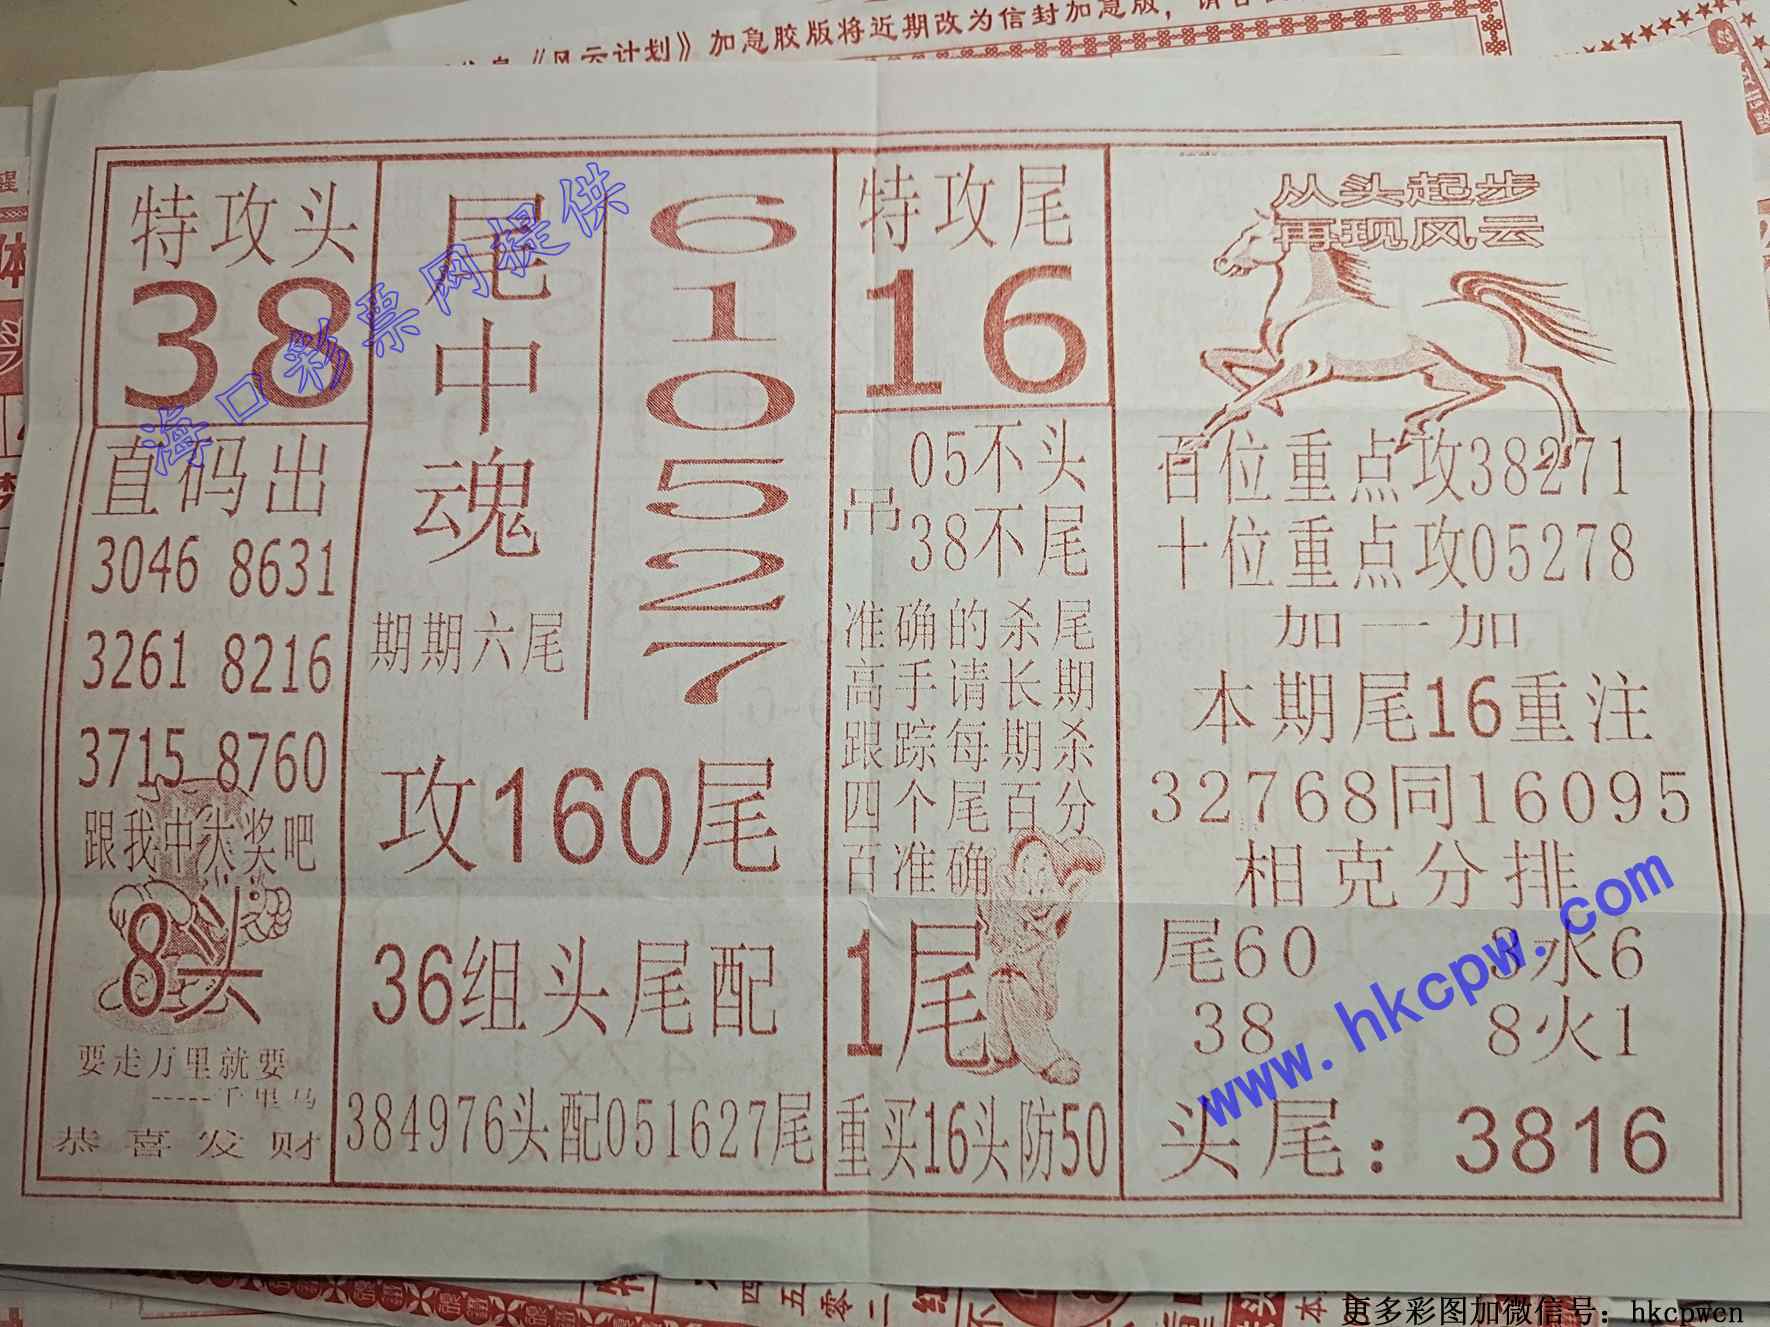 《风云计划》加急胶版将近期改为信封加急版,
特攻头
38
直码出
3046 8631
3261 8216
3715 8760
跟我中大奖吧
8头
要走万里就要
-----千里马
恭喜发财
尾中魂
期期六尾
610527
攻160尾
36组头尾配
384976头配051627尾
特攻尾
16
吊
05不头
38不尾
准确的杀尾
高手请长期
跟踪每期杀
四个尾百分
百准确
1尾
重买16头防50
从头起步
再现风云
百位重点攻38271
十位重点攻05278
加一加
本期尾16重注
32768同16095
相克分排
尾60 3水6
38 8火1
头尾：3816
海口彩票网提供
www.hkcpw.com
四五零二
更多彩图加微信号：hkcpwcn